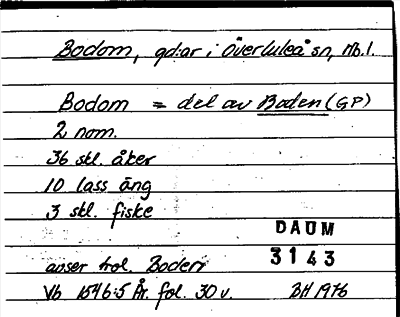 Bodom, gd:ar i Överluleå sn, Nb.l.
Bodom = del av Boden (GP)
2 nom.
36 skl. åker
10 lass äng
3 skl. fiske
DAUM
3143
avser trol. Boden
Vb 1546:5 År. fol. 30 v. BH 1976